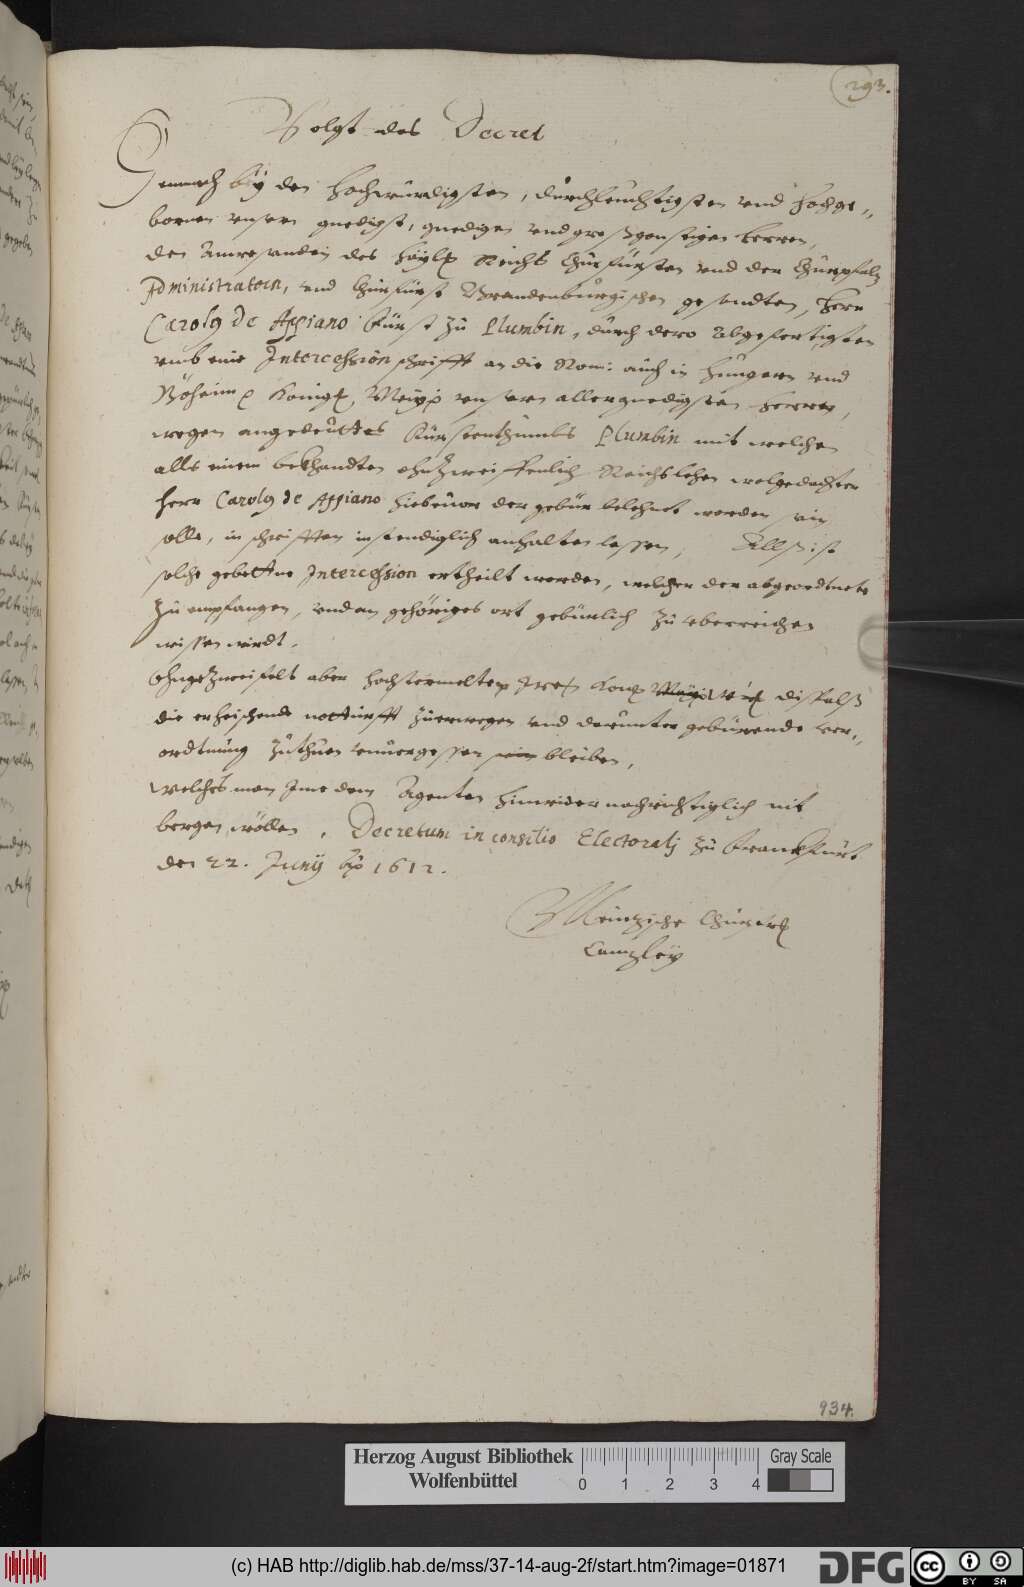 293.
Volgt das Decret
Demnach bey den Hochwürdigsten, Durchleuchtigsten vnd Hochge„
bornen vnsern gnedigst, gnedigen vnd großgonstigen Herren,
den Anwesenden des Heyl: Reichs Churfürsten vnd der Churpfaltz
Administratorn, vnd Churfürst Brandenburgischen gesandten, Herr
Carolus de Appiano Fürst zu Plumbin, durch dero Abgefertigten
vmb eine Intercession schrifft an die Röm: auch in Hungern vnd
Böheim Königl. May: vnsern allergnedigsten Herren,
wegen angedeuttes Fürstenthumbs Plumbin mit welchen
alls einem bekhandten ohnzweiffenlich Reichslehen wolgedachter
Herr Carolus de Appiano hiebeuor der gebür belehnet worden sein
solle, in schrifften instendiglich anhalten lassen, Allß ist
solche gebettne Intercession ertheilt worden, welcher der abgeordtnete
zu empfangen, vnd an gehöriges ort gebürlich zu vberreichen
wissen wirdt.
Ohngezweifelt aber höchstermelte Kön: dißfalß
die erheischende notturfft zuerwegen vnd darunter gebürende ver„
ordtnung zuthuen vnuergessen bleiben,
welches man Ime dem Agenten hinwider nachrichtiglich nit
bergen wöllen. Decretum in consilio Electorali zu Franckfurt
den 22. Junij Ao 1612.
Meintzische Churf:
Cantzley
934.
Herzog August Bibliothek
Wolfenbüttel
0 1 2 3 4
Gray Scale
(c) HAB http://diglib.hab.de/mss/37-14-aug-2f/start.htm?image=01871
DFG
cc BY SA